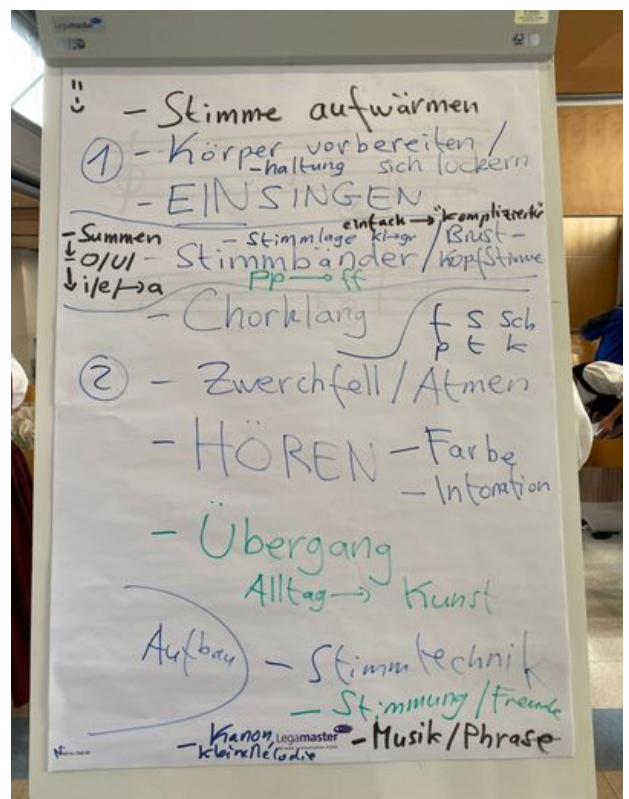 Legamaster
- Stimme aufwärmen
① - Körper vorbereiten /
- haltung sich lockern
- EINSINGEN
einfach → "kompliziert"
- Summen
- Stimmlage kl→gr
- O/U/
- Stimmbänder / Brust-
Kopfstimme
i/e/→a
pp → ff
- Chorklang
f s sch
p t k
② - Zwerchfell / Atmen
- HÖREN - Farbe
- Intonation
- Übergang
Alltag → Kunst
Aufbau
- Stimmtechnik
- Stimmung / Freude
- Kanon
Legamaster
- Musik / Phrase
kleine Melodie